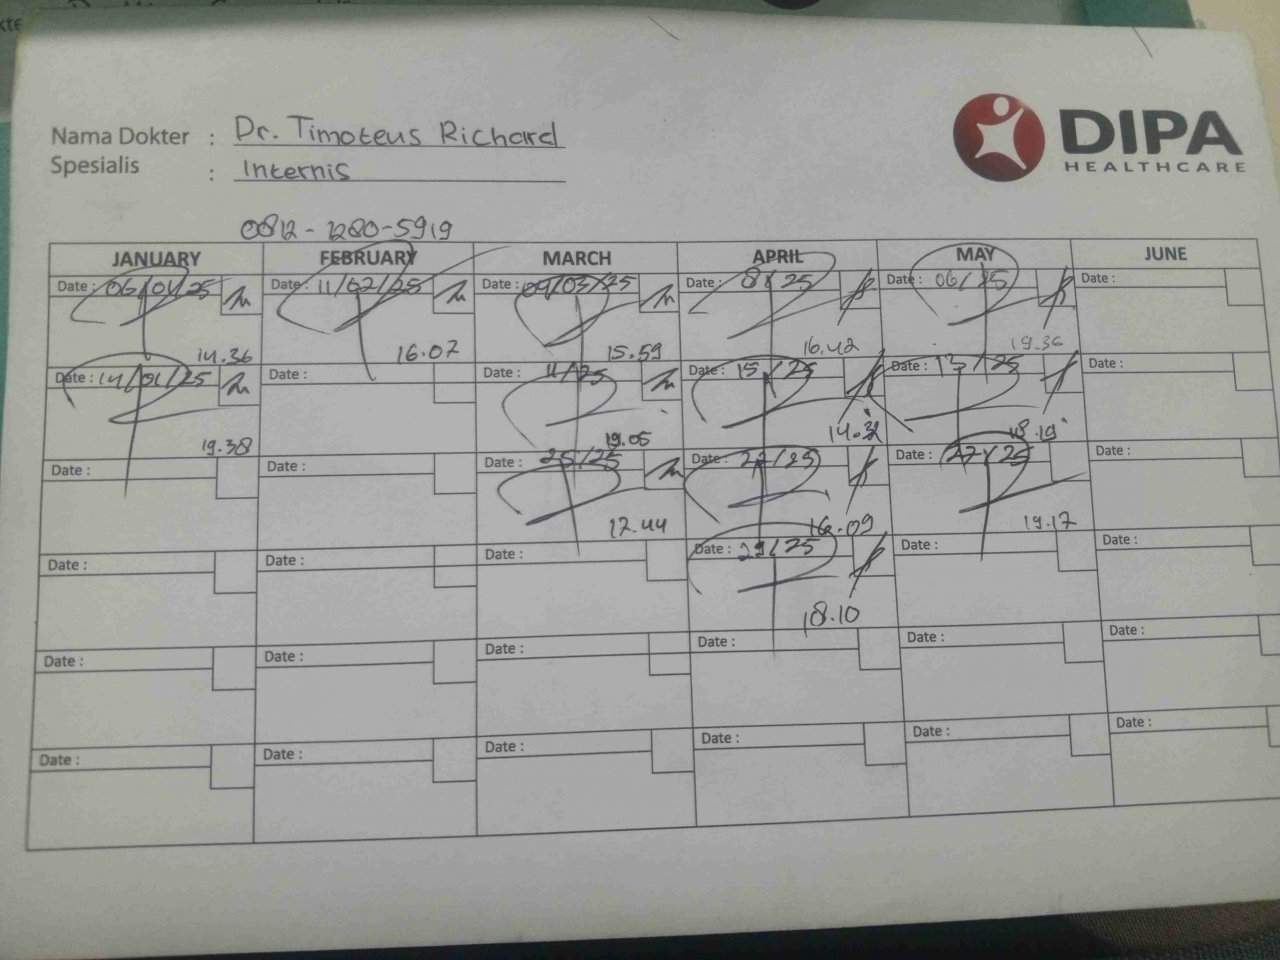 Nama Dokter : Dr. Timoteus Richard
Spesialis : Internis
DIPA
HEALTHCARE
0812-1280-5919
JANUARY FEBRUARY MARCH APRIL MAY JUNE
Date : 06/01/25 Date : 11/02/25 Date : 09/03/25 Date : 8/25 Date : 06/25 Date :
14.36 16.07 15.59 16.42 19.36
Date : 14/01/25 Date : Date : 11/25 Date : 15/25 Date : 13/25 Date :
19.38 19.05 14.31 18.19
Date : Date : Date : 25/25 Date : 22/25 Date : 27/25 Date :
17.44 16.09 19.17
Date : Date : Date : Date : 29/25 Date : Date :
18.10
Date : Date : Date : Date : Date : Date :
Date : Date : Date : Date : Date : Date :